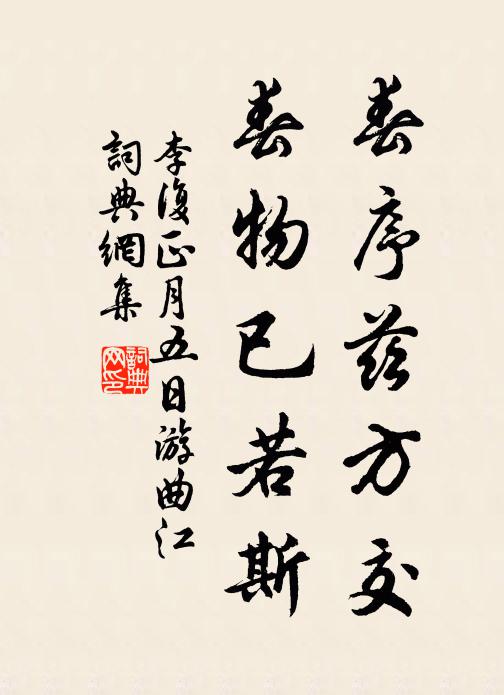 春序茲方交
春物已若斯
李復正月五日游曲江
詞典網集
詞典网印